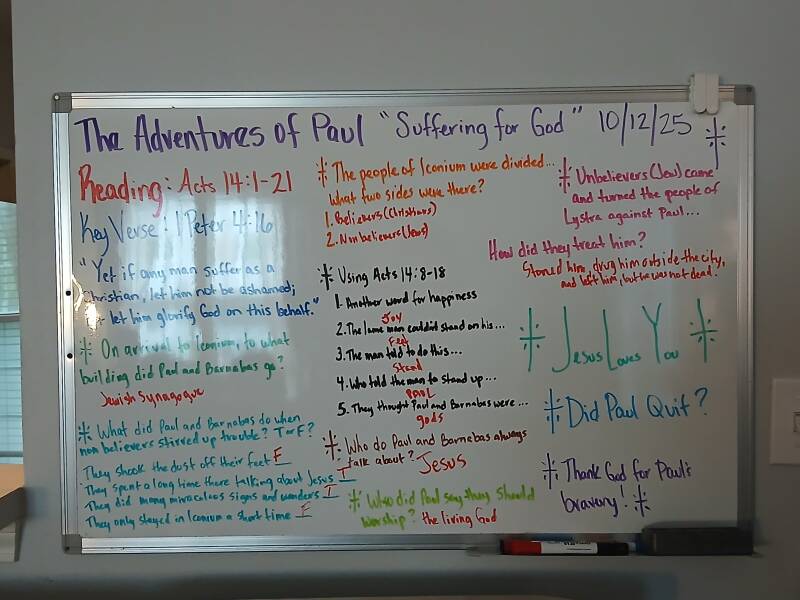 The Adventures of Paul "Suffering for God" 10/12/25
Reading: Acts 14:1-21
Key Verse: 1 Peter 4:16
"Yet if any man suffer as a
Christian, let him not be ashamed;
let him glorify God on this behalf."
On arrival to Iconium, to what
building did Paul and Barnabas go?
Jewish Synagogue
What did Paul and Barnabas do when
non believers stirred up trouble? T or F?
They shook the dust off their feet F
They spent a long time there talking about Jesus T
They did many miraculous signs and wonders T
They only stayed in Iconium a short time F
The people of Iconium were divided...
what two sides were there?
1. Believers (Christians)
2. Nonbelievers (Jews)
Using Acts 14:8-18
1. Another word for happiness
Joy
2. The lame man could stand on his...
Feet
3. The man told to do this...
Stand
4. Who told the man to stand up...
PAUL
5. They thought Paul and Barnabas were...
gods
Who do Paul and Barnabas always
talk about? Jesus
Who did Paul say they should
worship? the living God
Unbelievers (Jew) came
and turned the people of
Lystra against Paul...
How did they treat him?
Stoned him, drug him outside the city,
and left him, but he was not dead.
Jesus Loves You
Did Paul Quit?
Thank God for Paul's
bravery!